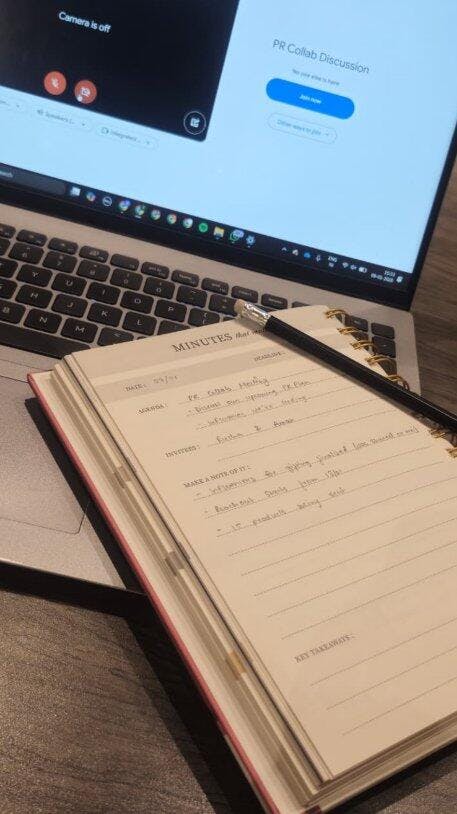 Camera is off
PR Collab Discussion
No one else is here
Join now
Other ways to join
Speakers (...
Integrated ...
search
ENG
IN
15:53
MINUTES that
DEADLINE:
DATE:
AGENDA: PR Collab Meeting
- Discuss our upcoming PR Plan
- Influencers we're sending
INVITEES: & Aman
MAKE A NOTE OF IT:
- Influencers for gifting finalised
- Reachout starts from
- 15 products being sent
KEY TAKEAWAYS: